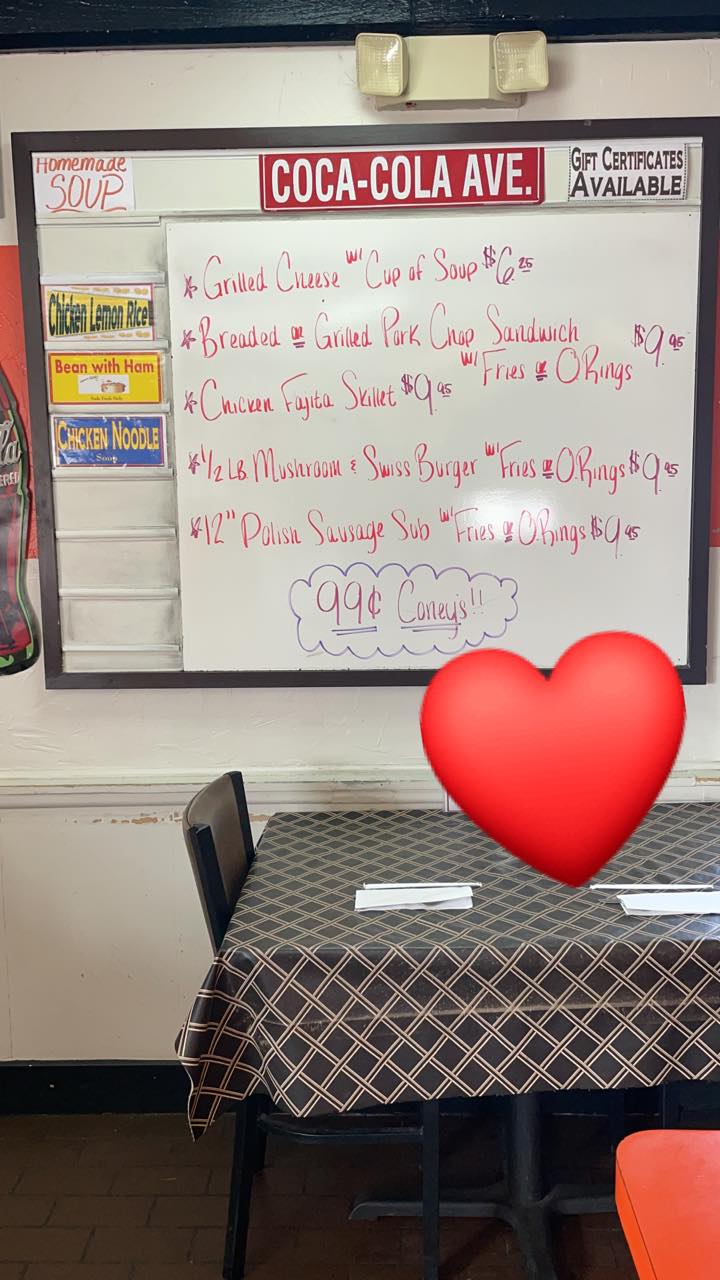 Homemade
SOUP
COCA-COLA AVE.
GIFT CERTIFICATES
AVAILABLE
Chicken Lemon Rice
Bean with Ham
CHICKEN NOODLE
Soup
* Grilled Cheese w/ Cup of Soup $6.25
* Breaded or Grilled Pork Chop Sandwich $9.95
w/ Fries or O.Rings
* Chicken Fajita Skillet $9.95
* 1/2 LB. Mushroom & Swiss Burger w/ Fries or O.Rings $9.95
* 12" Polish Sausage Sub w/ Fries or O.Rings $9.95
99¢ Coney's!!